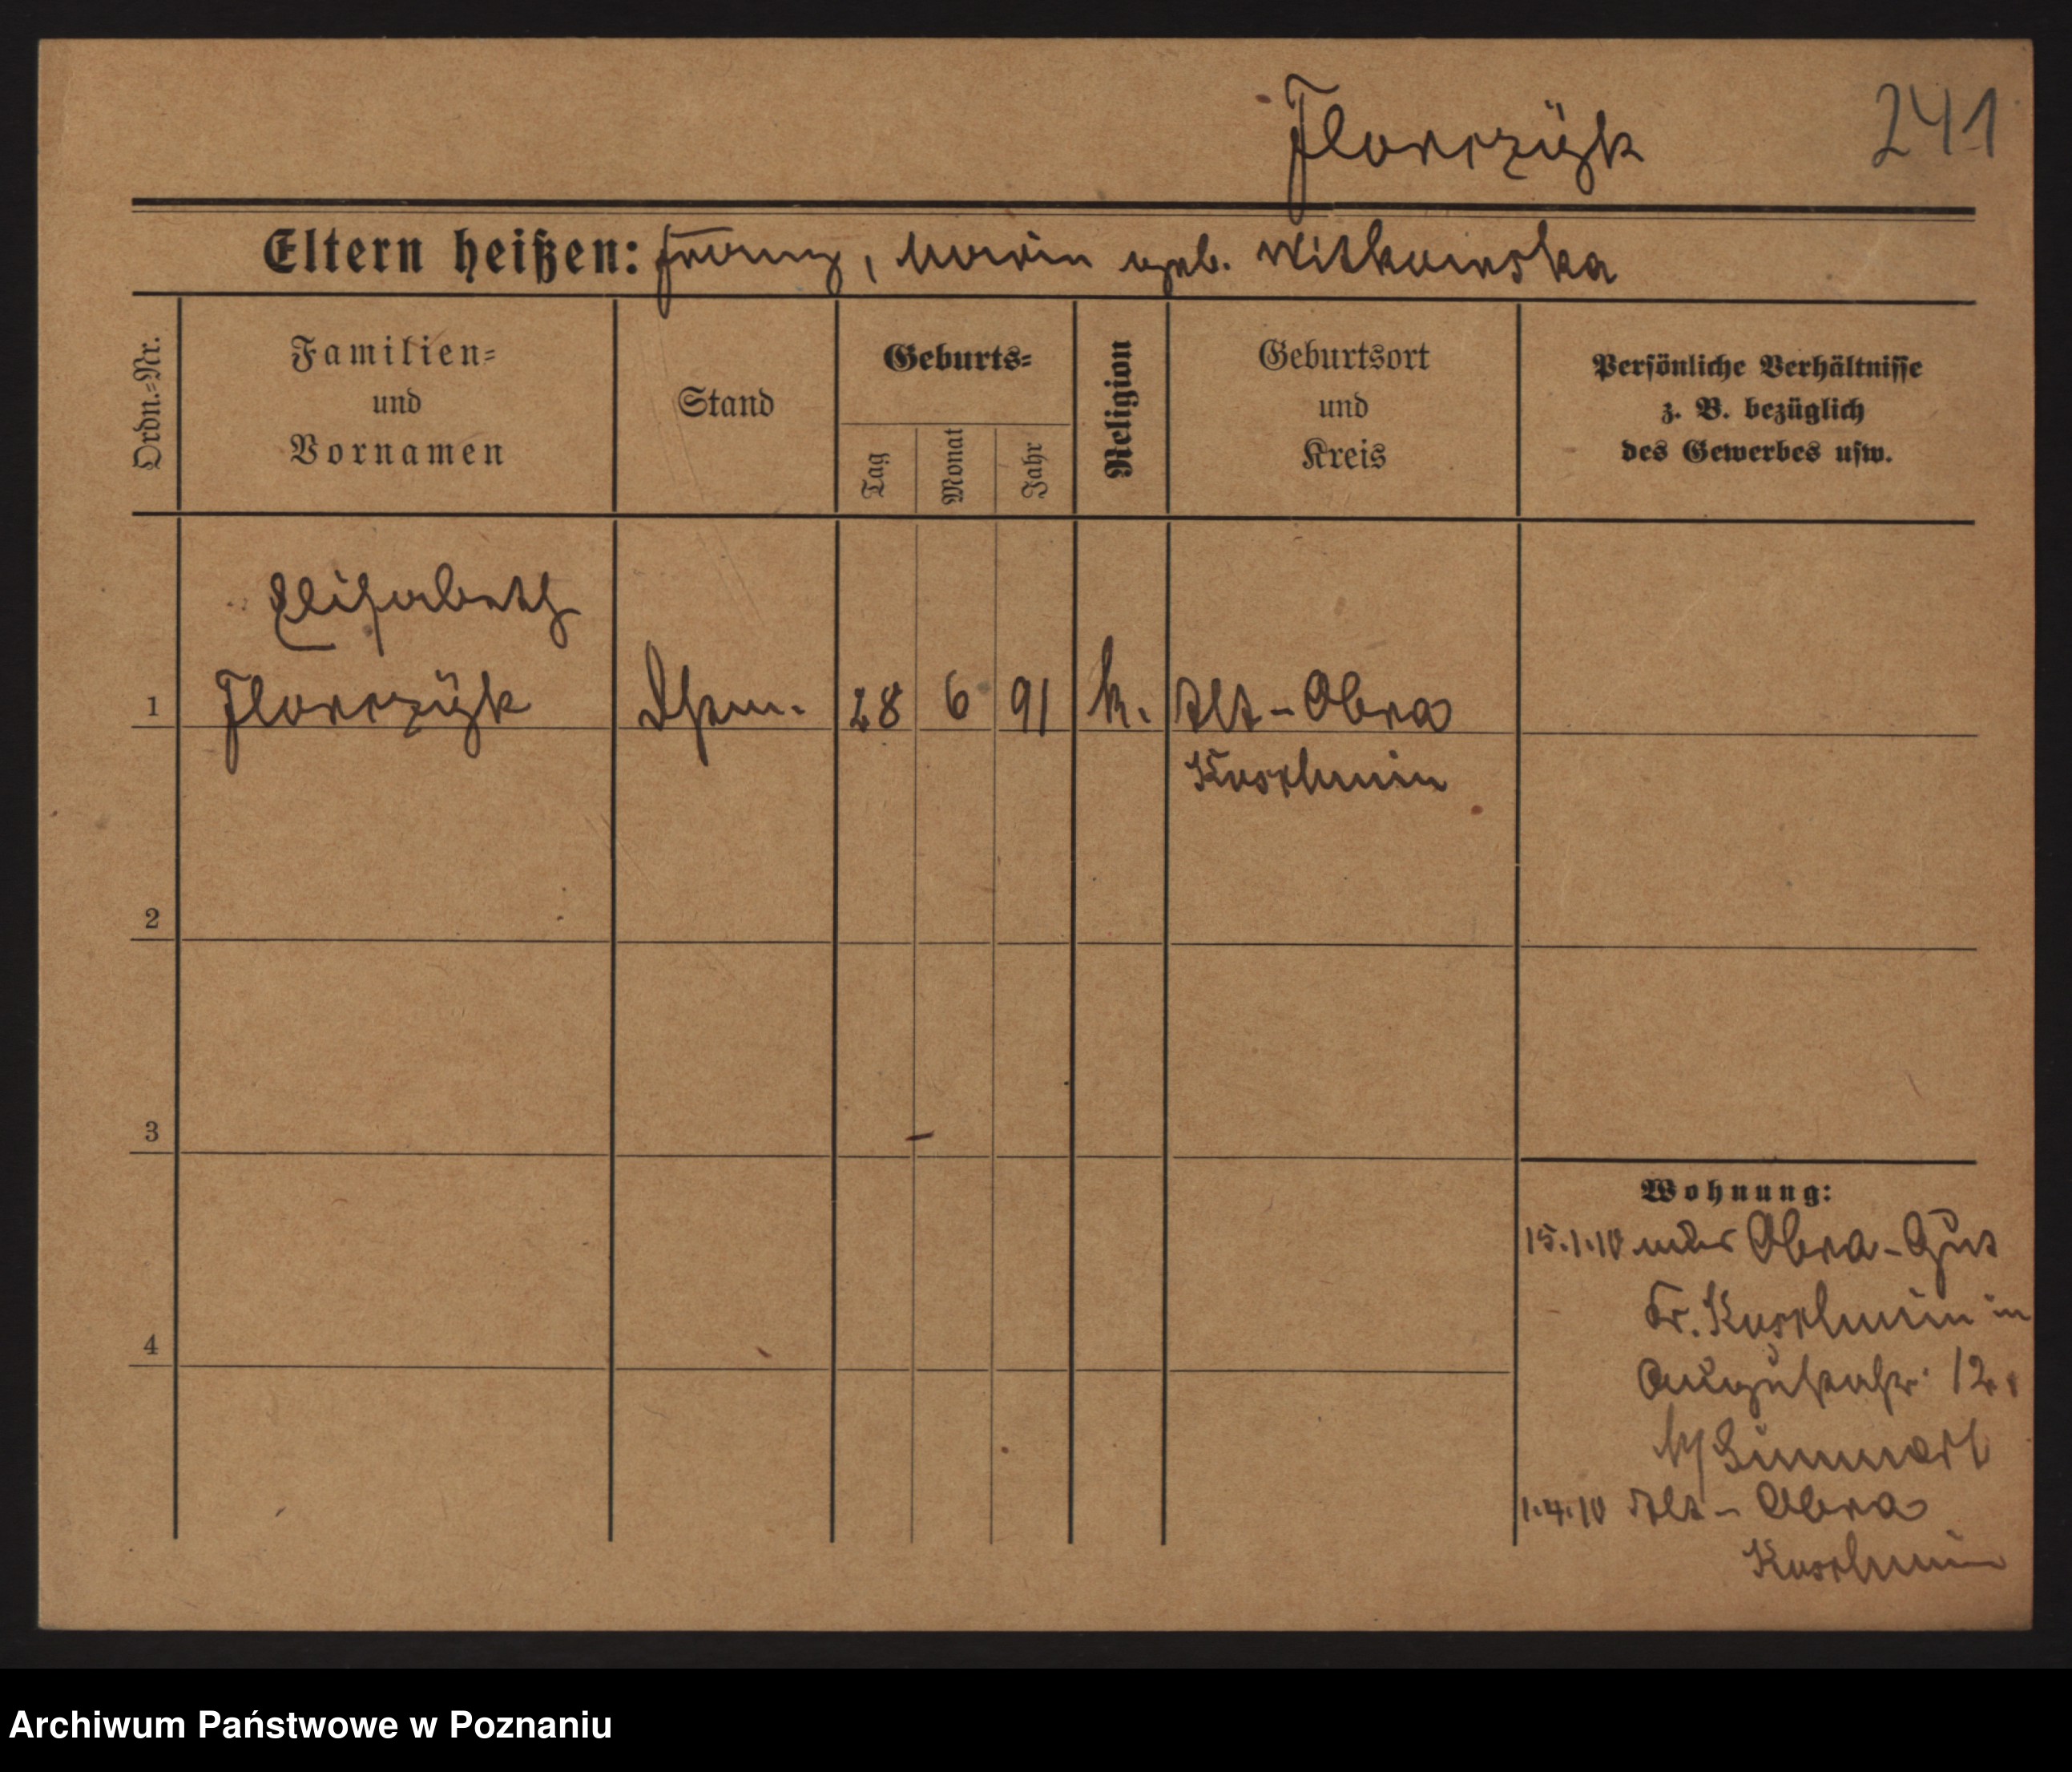 Florczÿk 241
Eltern heißen: Franz, Marie geb. Witkowska
Ordn.=Nr.
Familien=
und
Vornamen
Stand
Geburts=
Tag
Monat
Jahr
Religion
Geburtsort
und
Kreis
Persönliche Verhältnisse
z. B. bezüglich
des Gewerbes usw.
Elisabeth
1 Florczÿk 28 6 91 k. Alt-Obra
Koschmin
2
3
4
Wohnung:
15.1.10 Obra-Gut
Kr. Koschmin in
12.
1.4.10 Alt-Obra
Koschmin
Archiwum Państwowe w Poznaniu